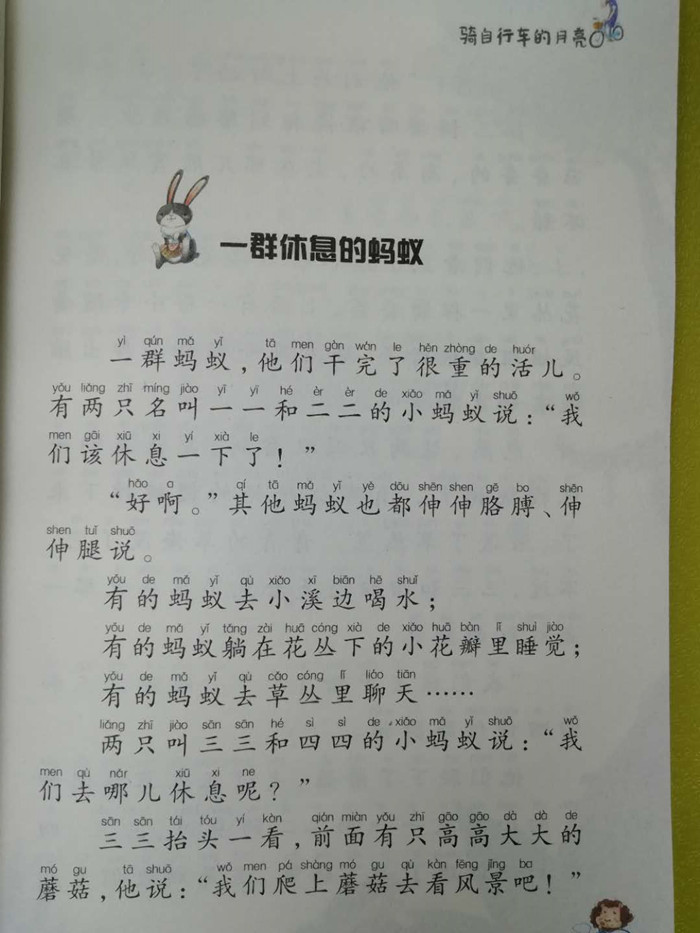 骑自行车的月亮
一群休息的蚂蚁
yì qún mǎ yǐ tā men gàn wán le hěn zhòng de huór
一群蚂蚁，他们干完了很重的活儿。
yǒu liǎng zhī míng jiào yī yī hé èr èr de xiǎo mǎ yǐ shuō wǒ
有两只名叫一一和二二的小蚂蚁说：“我
men gāi xiū xi yí xià le
们该休息一下了！”
hǎo a qí tā mǎ yǐ yě dōu shēn shen gē bo shēn
“好啊。”其他蚂蚁也都伸伸胳膊、伸
shen tuǐ shuō
伸腿说。
yǒu de mǎ yǐ qù xiǎo xī biān hē shuǐ
有的蚂蚁去小溪边喝水；
yǒu de mǎ yǐ tǎng zài huā cóng xià de xiǎo huā bàn lǐ shuì jiào
有的蚂蚁躺在花丛下的小花瓣里睡觉；
yǒu de mǎ yǐ qù cǎo cóng lǐ liáo tiān
有的蚂蚁去草丛里聊天……
liǎng zhī jiào sān sān hé sì sì de xiǎo mǎ yǐ shuō wǒ
两只叫三三和四四的小蚂蚁说：“我
men qù nǎr xiū xi ne
们去哪儿休息呢？”
sān sān tái tóu yí kàn qián miàn yǒu zhī gāo gāo dà dà de
三三抬头一看，前面有只高高大大的
mó gu tā shuō wǒ men pá shàng mó gu qù kàn fēng jǐng ba
蘑菇，他说：“我们爬上蘑菇去看风景吧！”